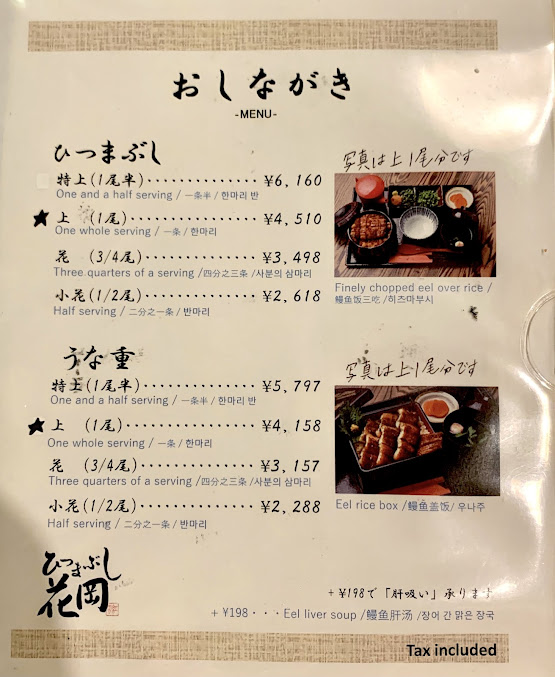 おしながき
-MENU-
ひつまぶし
特上(1尾半)・・・・・・・・・・・・・・・¥6,160
One and a half serving / 一条半 / 한마리 반
★上 (1尾)・・・・・・・・・・・・・・・¥4,510
One whole serving / 一条 / 한마리
花 (3/4尾)・・・・・・・・・・・・・・・¥3,498
Three quarters of a serving /四分之三条 /사분의 삼마리
小花(1/2尾)・・・・・・・・・・・・・・・¥2,618
Half serving / 二分之一条 / 반마리
写真は上1尾分です
Finely chopped eel over rice /
鳗鱼饭三吃 /히츠마부시
うな重
特上(1尾半)・・・・・・・・・・・・・・・¥5,797
One and a half serving / 一条半 / 한마리 반
★上 (1尾)・・・・・・・・・・・・・・・¥4,158
One whole serving / 一条 / 한마리
花 (3/4尾)・・・・・・・・・・・・・・・¥3,157
Three quarters of a serving /四分之三条 /사분의 삼마리
小花(1/2尾)・・・・・・・・・・・・・・・¥2,288
Half serving / 二分之一条 / 반마리
写真は上1尾分です
Eel rice box /鳗鱼盖饭/ 우나주
ひつまぶし
花岡
+¥198で「肝吸い」承ります
+ ¥198・・・Eel liver soup /鳗鱼肝汤 /장어 간 맑은 장국
Tax included